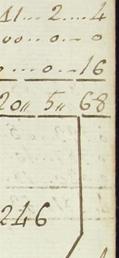 41...2...4
00..0..0
0...0..16
20,, 5,, 68
246